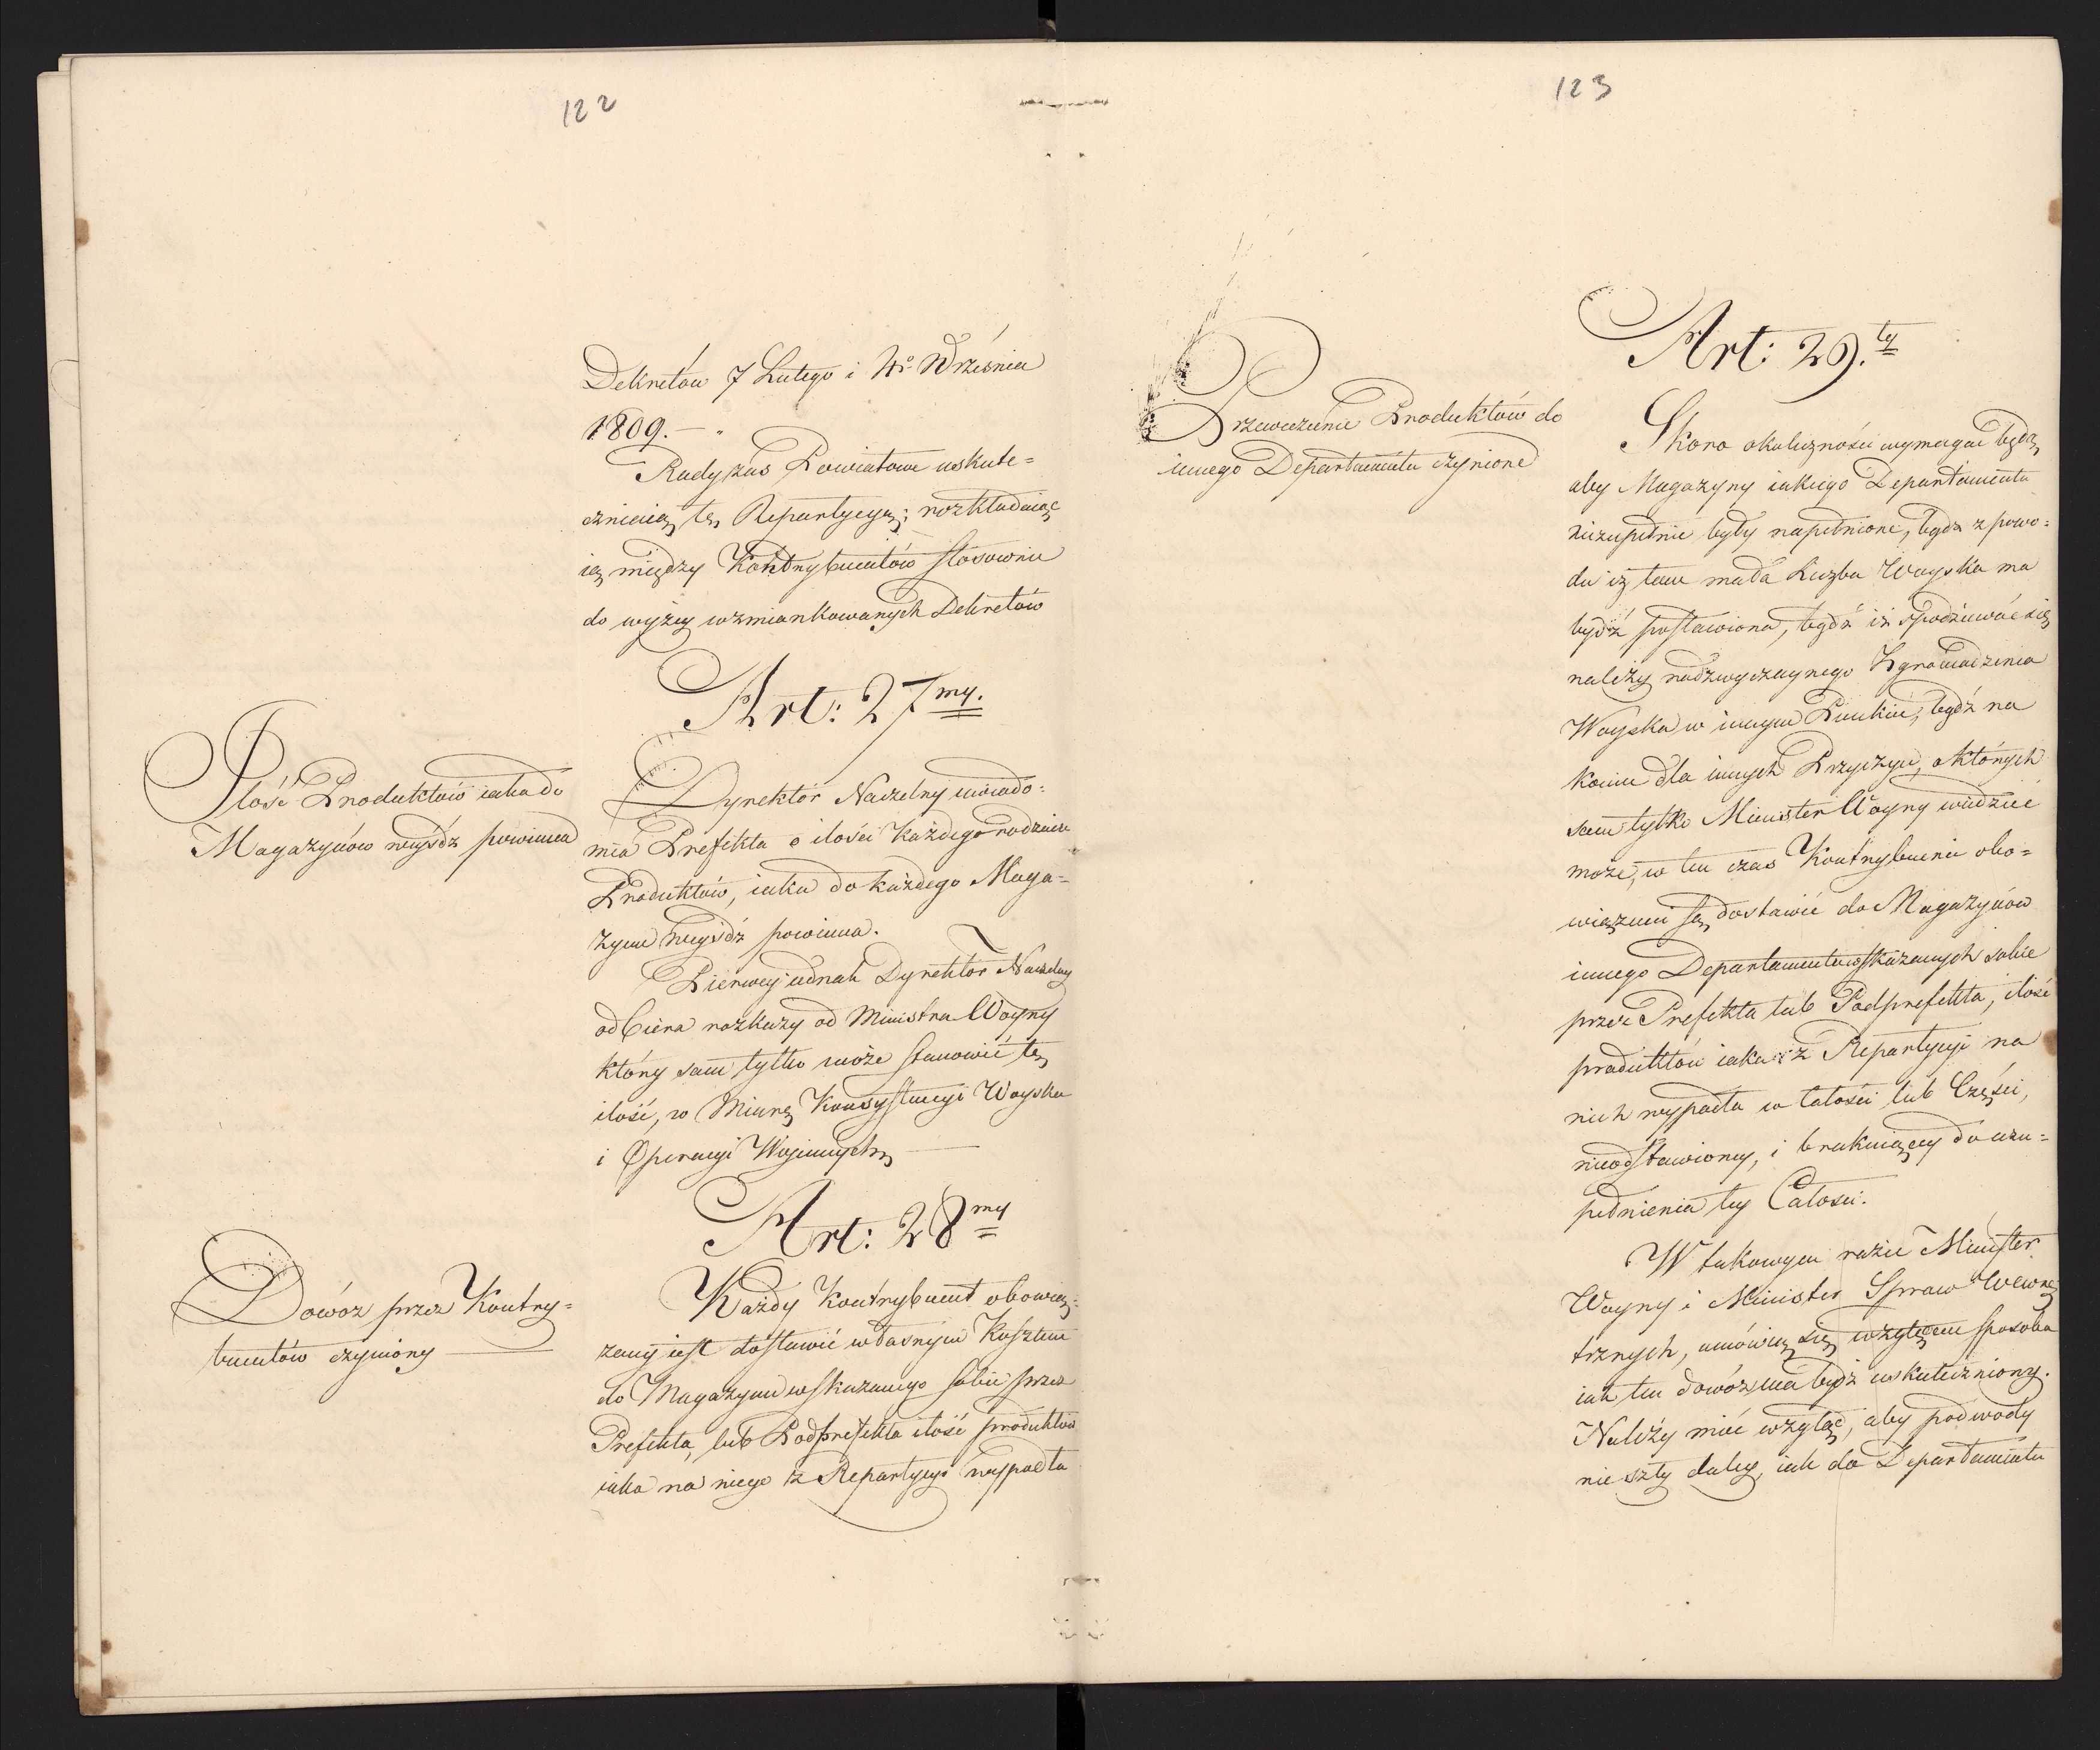 122
Dekretów 7 Lutego i 4º Września
1809.—
Rady zaś Powiatowe uskute=
cznieią tę Repartycyą; rozkładaiąc
ią między Kontrybuentów stosownie
do wyżey wzmiankowanych Dekretów
Art: 27my.
Ilość Produktów iaka do
Magazynów weyśdź powinna
Dyrektor Naczelny uwiado=
mia Prefekta o ilości każdego rodzaiu
Produktów, iaka do każdego Maga=
zynu weyśdź powinna.
Pierwey iednak Dyrektor Naczelny
odbiera rozkazy od Ministra Woyny
który sam tylko może stanowić tę
ilość, w Miarę Konsystencyi Woyska
i Operacyi Wojennych
Art: 28my
Dowóz przez Kontry=
buentów czyniony
Każdy Kontrybuent obowią=
zany iest dostawić własnym Kosztem
do Magazynu wskazanego sobie przez
Prefekta, lub Podprefekta ilość produktów
iaka na niego z Repartycyi wypadła
123
Art: 29.ty
Przewożenie Produktów do
innego Departamentu czynione
Skoro okoliczności wymagać będą,
aby Magazyny iakiego Departamentu
niezupełnie były napełnione, bądź z powo=
du iż tam mała Liczba Woyska ma
bydź postawiona, bądź iż spodziewać się
należy nadzwyczaynego Zgromadzenia
Woyska w innym Punkcie, bądź na
koniec dla innych Przyczyn, o których
sam tylko Minister Woyny wiedzieć
może, w ten czas Kontrybuenci obo=
wiązani są dostawić do Magazynów
innego Departamentu wskazanych sobie
przez Prefekta lub Podprefekta, ilość
produktów iaka z Repartycyi na
nich wypadła w całości lub Części,
nieodstawioney, i brakuiącey do uzu=
pełnienia tey Całości.
W takowym razie Minister
Woyny i Minister Spraw Wewnę
trznych, umówią się względem sposobu
iak ten dowóz ma bydź uskuteczniony.
Należy mieć wzgląd, aby podwody
nie szły daley, iak do Departamentu